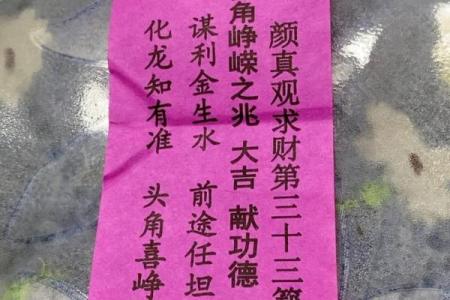 颜真观求财第三十三签
角峥嵘之兆 大吉 献功德
谋利金生水 前途任坦
化龙知有准 头角喜峥